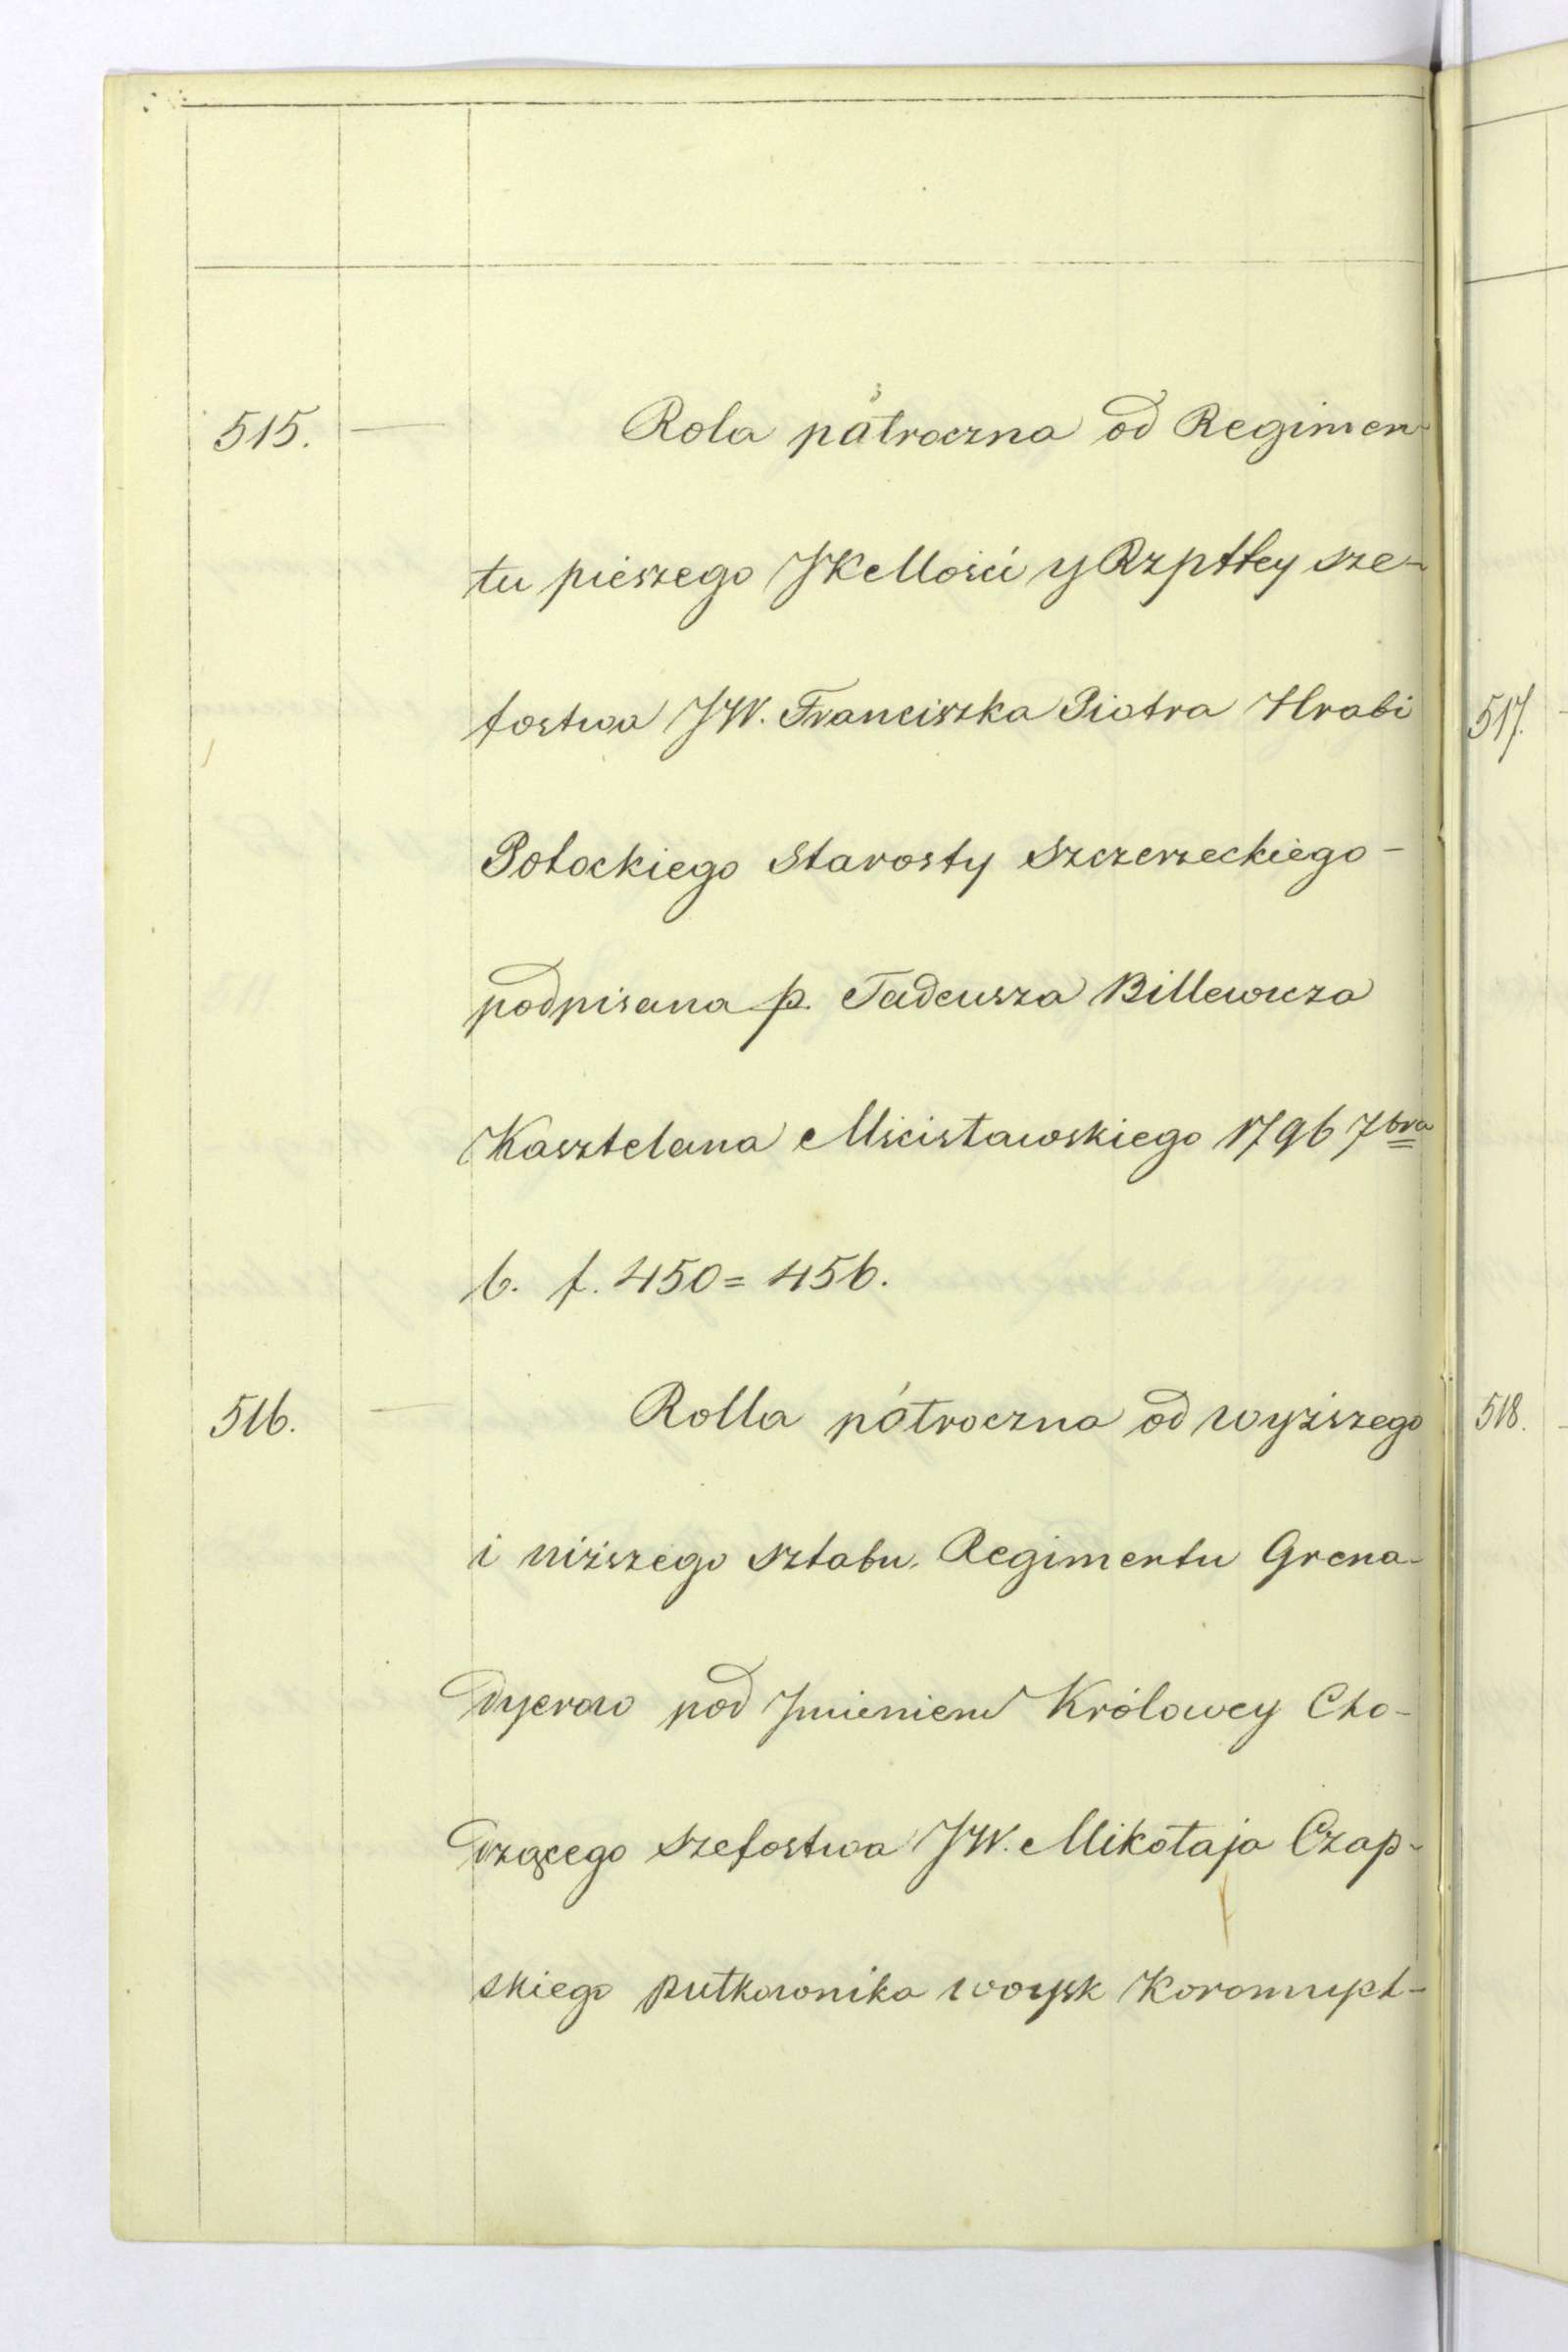 515. — Rola półroczna od Regimen-
tu pieszego JKMości y Rzpttey sze-
fostwa JW. Franciszka Piotra Hrabi
Potockiego Starosty Szczerzeckiego -
podpisana p. Tadeusza Billewicza
Kasztelana Mścisławskiego 1796 7bra
6. f. 450 = 456.
516. — Rolla półroczna od wyższego
i niższego sztabu. Regimentu Grena-
dyerow pod Jmieniem Królowey Cho-
dzącego szefostwa JW. Mikołaja Czap-
skiego pułkownika woysk Koronnych -
517.
518.